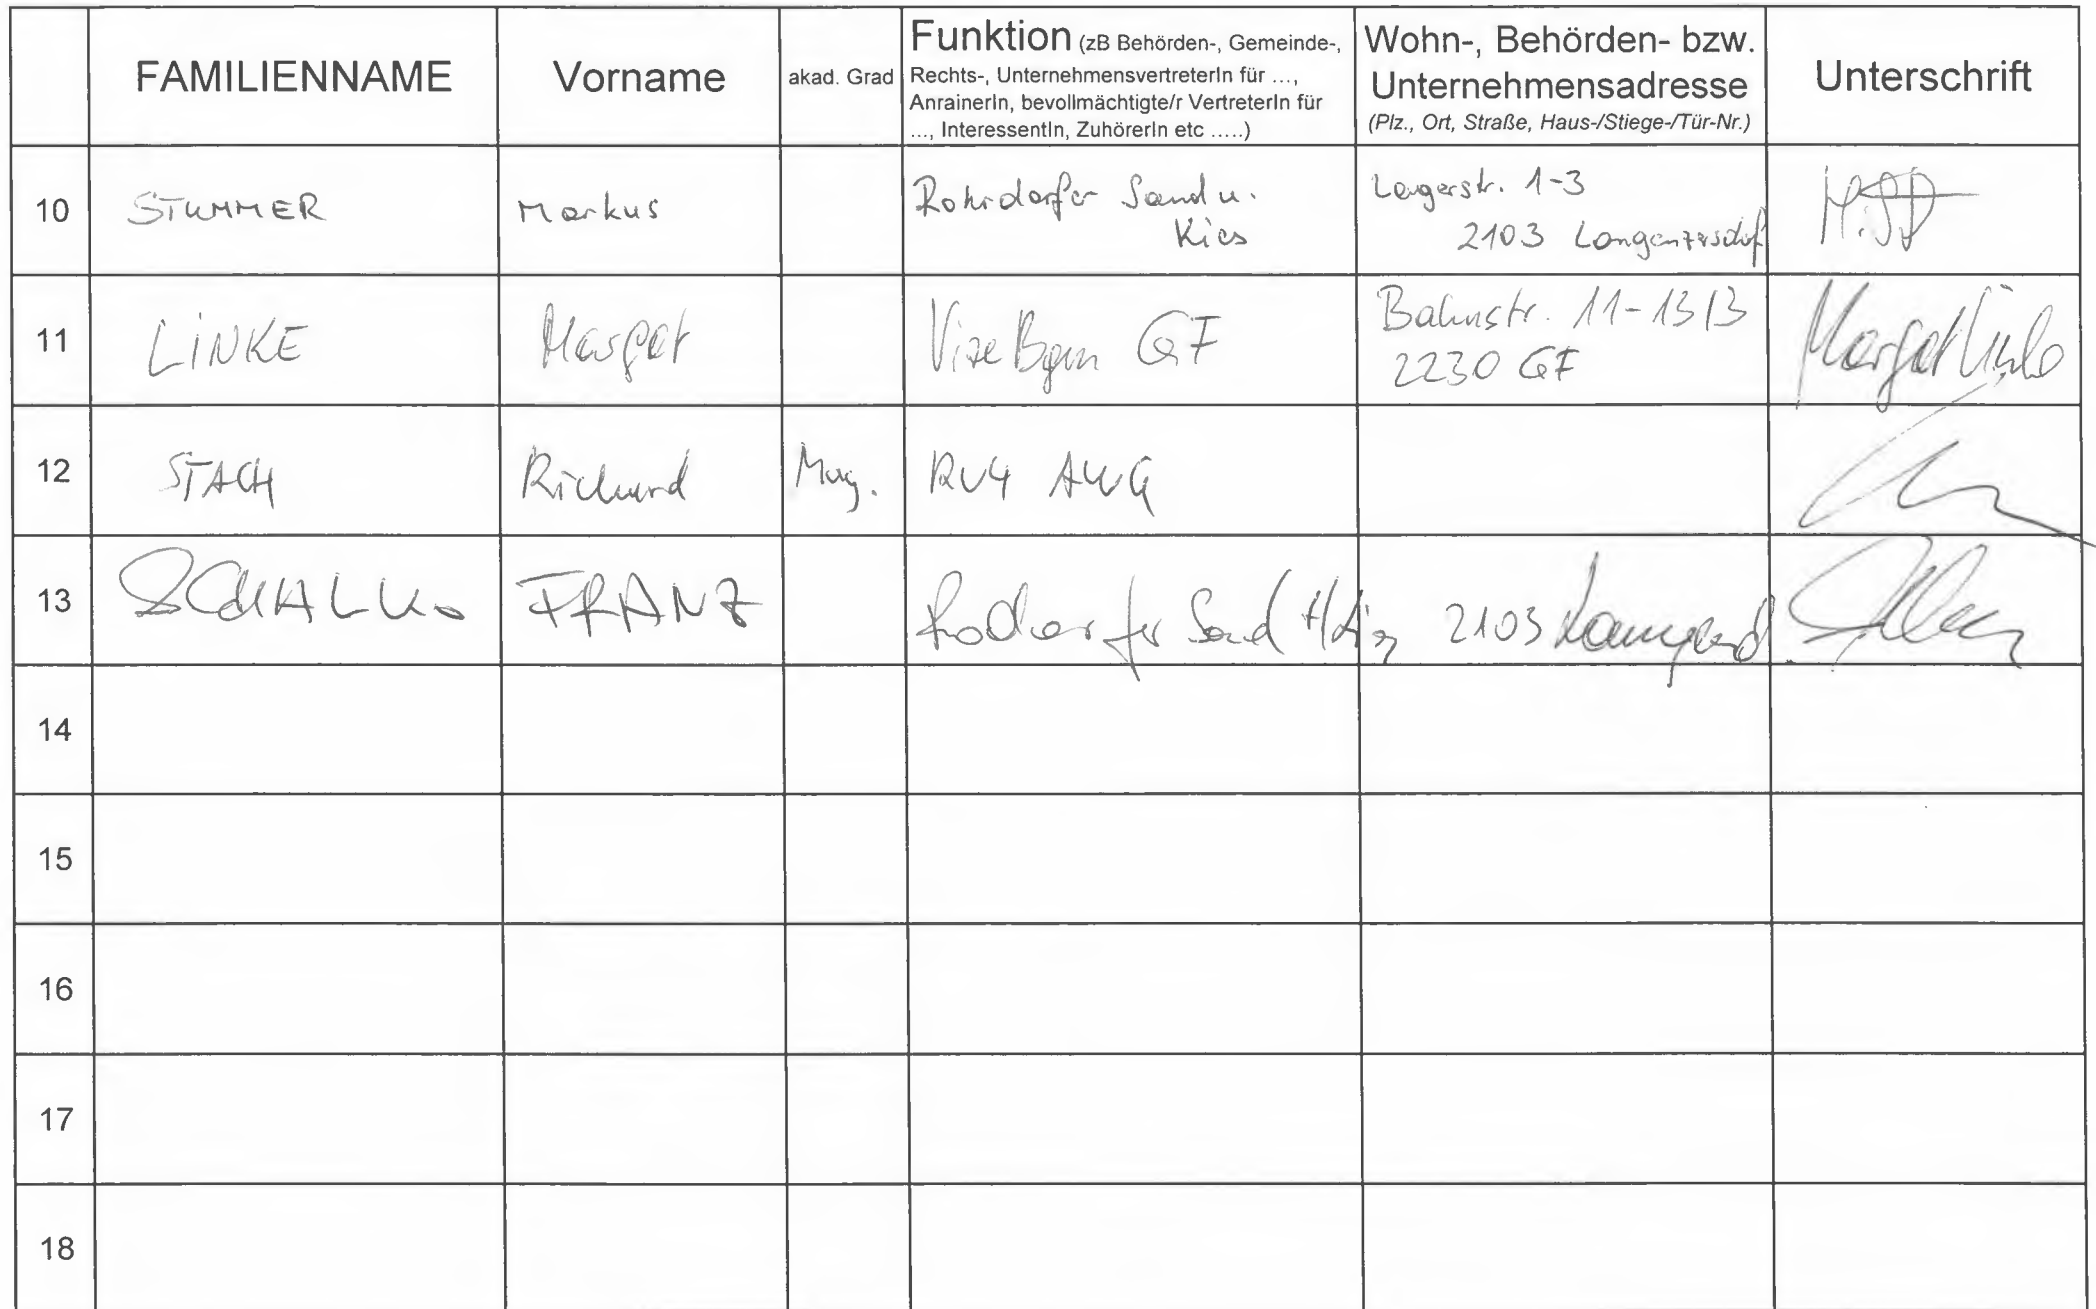 FAMILIENNAME Vorname akad. Grad Funktion (zB Behörden-, Gemeinde-,
Rechts-, UnternehmensvertreterIn für ...,
AnrainerIn, bevollmächtigte/r VertreterIn für
..., InteressentIn, ZuhörerIn etc .....)
Wohn-, Behörden- bzw.
Unternehmensadresse
(Plz., Ort, Straße, Haus-/Stiege-/Tür-Nr.)
Unterschrift
10 STUMMER Markus Rohrdorfer Sand u.
Kies
Lagerstr. 1-3
2103 Langenzersdorf
11 LINKE Margot VizeBgm GF
Bahnstr. 11-13/3
2230 GF
Margot Linke
12 STACH Richard Mag. RU4 AWG
13 SCHALKO FRANZ Sand 2103
14
15
16
17
18